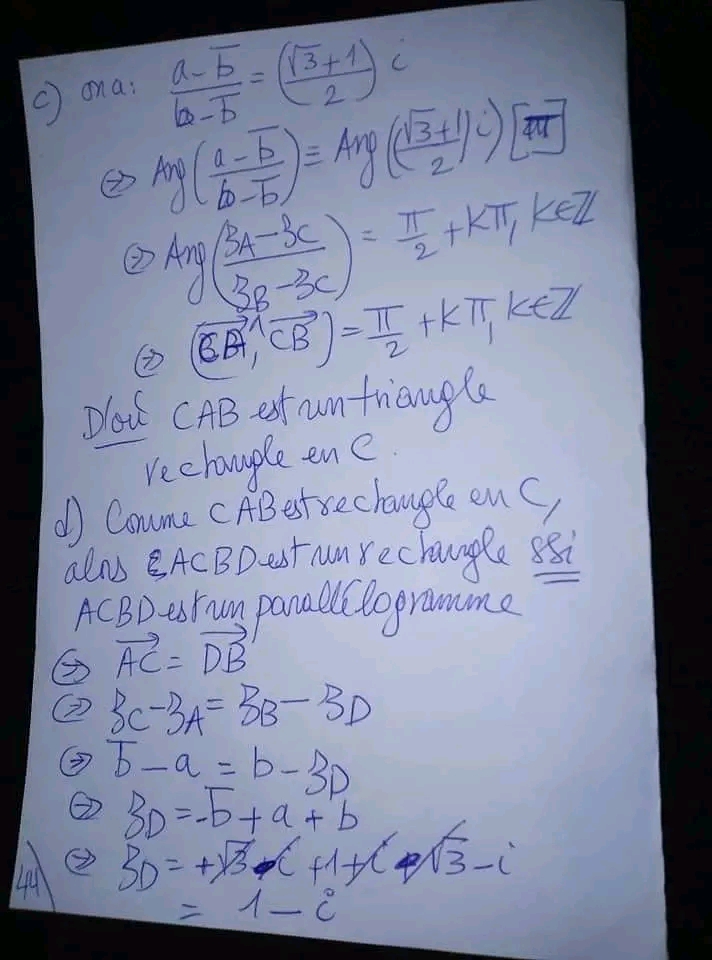 c) on a: (a - b̄)/(b - b̄) = ((√3+1)/2) i
⇔ Arg((a - b̄)/(b - b̄)) ≡ Arg(((√3+1)/2) i) [π]
⇔ Arg((zA - zC)/(zB - zC)) = π/2 + kπ, k∈ℤ
⇔ (CA→, CB→) = π/2 + kπ, k∈ℤ
D'où CAB est un triangle
rectangle en C.
d) Comme CAB est rectangle en C,
alors ACBD est un rectangle ssi
ACBD est un parallélogramme
⇔ AC→ = DB→
⇔ zC - zA = zB - zD
⇔ b̄ - a = b - zD
⇔ zD = -b̄ + a + b
⇔ zD = +√3 - i + 1 + i - √3 - i
= 1 - i
44)